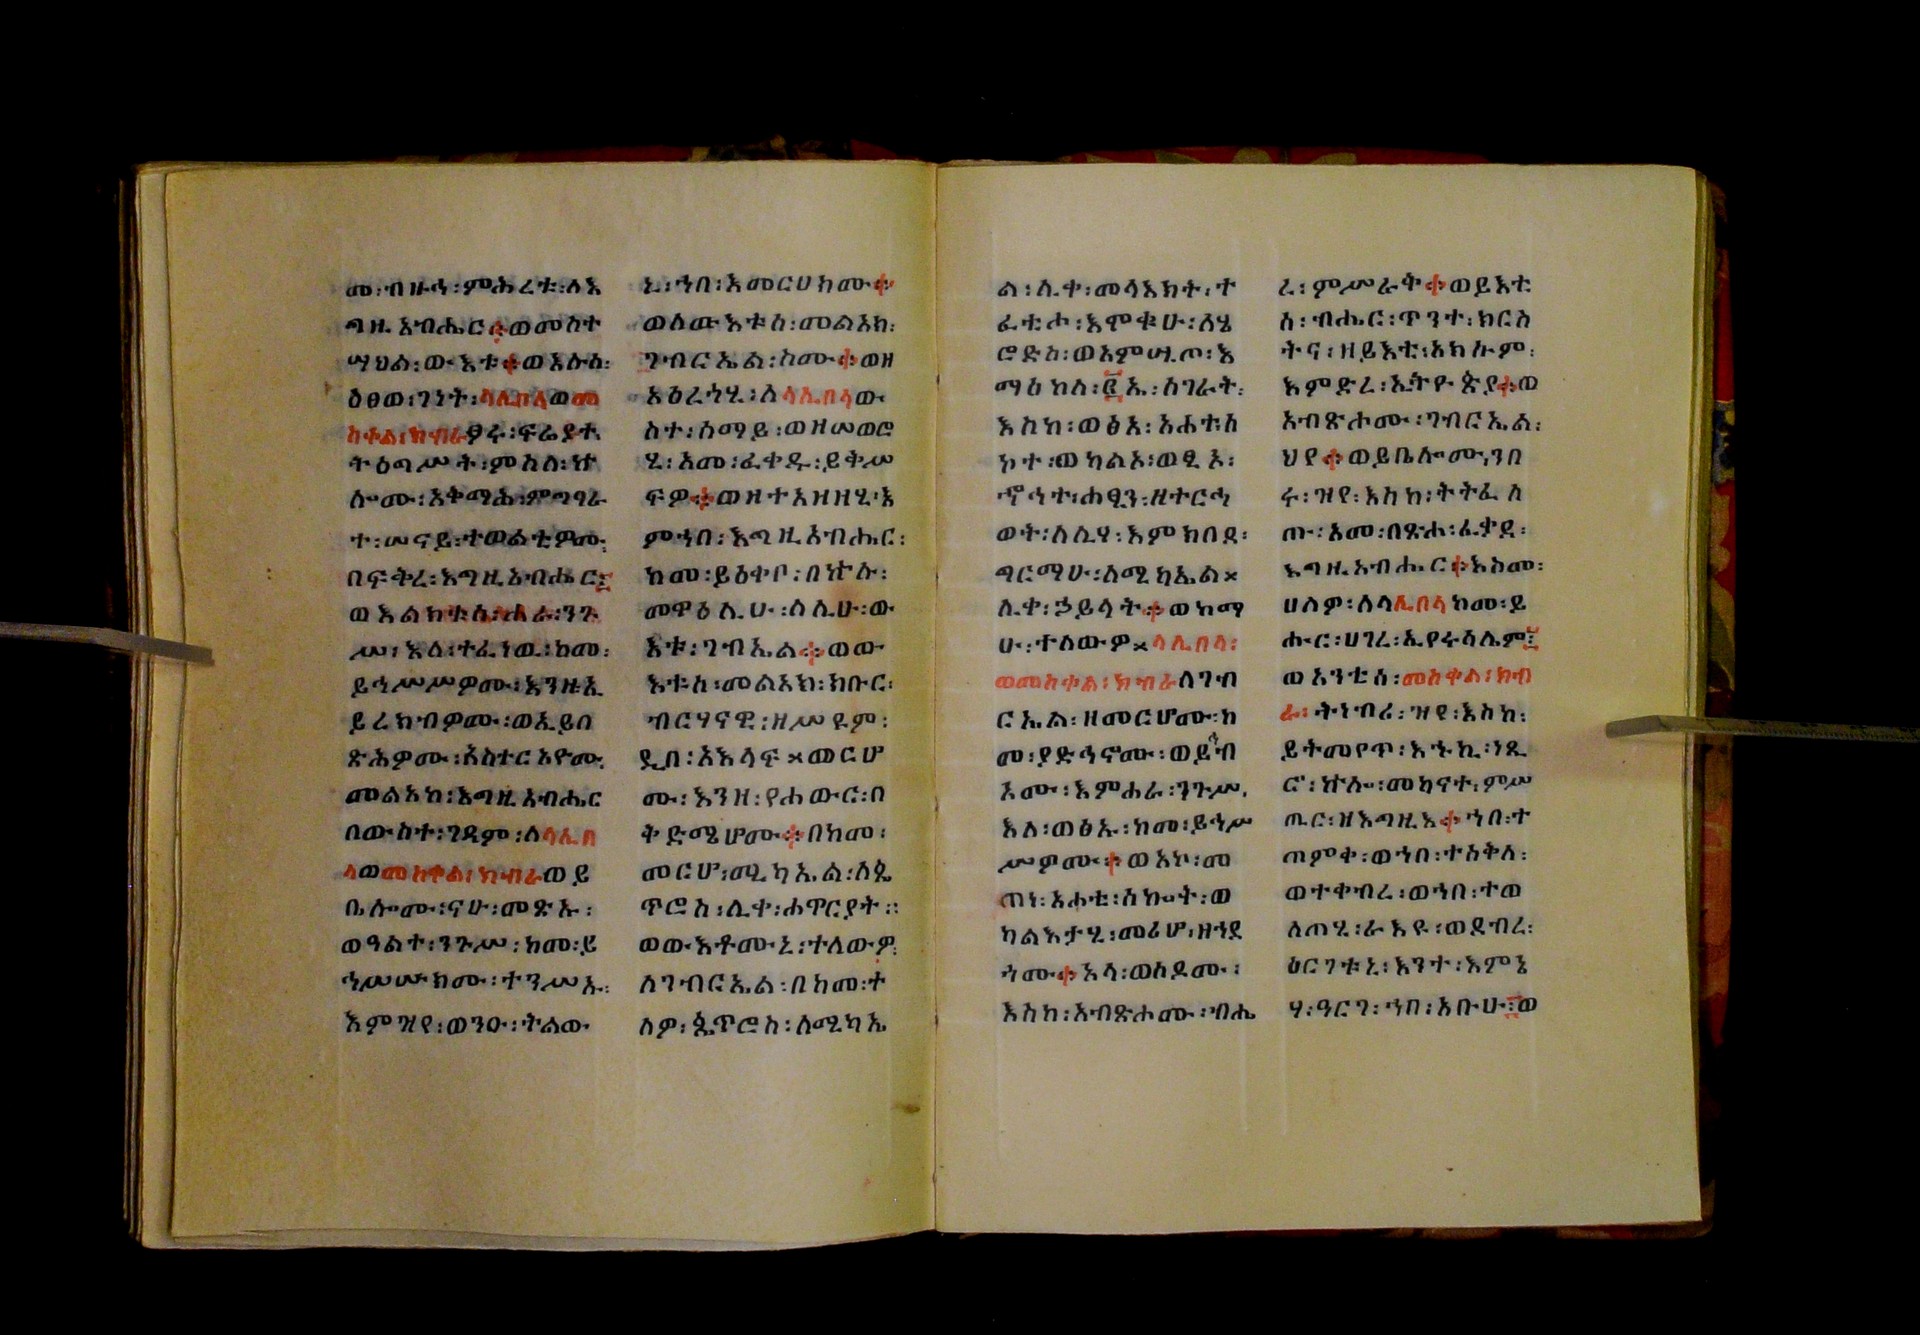 መ፡ብዙኅ፡ምሕረቱ፡ለእ
ግዚአብሔር፨ወመስተ
ሣህል፡ውእቱ፨ወእሉሰ፡
ዕፀወ፡ገነት፡ላሊበላወመ
ስቀል፡ክብራፆሩ፡ፍሬያተ
ትዕግሥት፡ምስለ፡ኵ
ሎሙ፡አቅማሕ፡ምግባራ
ተ፡ሠናይ፡ተወልቲዎሙ፡
በፍቅረ፡እግዚአብሔር፤
ወእልክቱሰ፡ሐራ፡ንጉ
ሥ፡እለ፡ተፈነዉ፡ከመ፡
ይኅሥሥዎሙ፡እንዙኢ
ይረክብዎሙ፡ወኢይበ
ጽሕዎሙ፡አስተርአዮሙ፡
መልአከ፡እግዚአብሔር
በውስተ፡ገዳም፡ለላሊበ
ላወመስቀል፡ክብራወይ
ቤሎሙ፡ናሁ፡መጽኡ፡
ወዓልተ፡ንጉሥ፡ከመ፡ይ
ኅሠሡክሙ፡ተንሥኡ፡
እምዝየ፡ወንዑ፡ትልው
ኒ፡ኀበ፡እመርሀክሙ፨
ወለውእቱሰ፡መልአክ፡
ገብርኤል፡ስሙ፨ወዘ
አዕረጎሂ፡ለላሊበላው
ስተ፡ሰማይ፡ወዘሠወሮ
ሂ፡አመ፡ፈቀዱ፡ይቅሥ
ፍዎ፨ወዘተአዘዘሂ፡እ
ምኀበ፡እግዚአብሔር፡
ከመ፡ይዕቀቦ፡በኵሉ፡
መዋዕሊሁ፡ለሊሁ፡ው
እቱ፡ገብኤል፨ወው
እቱሰ፡መልአክ፡ክቡር፡
ብርሃናዊ፡ዘሥዩም፡
ዲበ፡አእላፍ×ወርሆ
ሙ፡እንዘ፡የሐውር፡በ
ቅድሜሆሙ፨በከመ፡
መርሆ፡ሚካኤል፡ለጴ
ጥሮስ፡ሊቀ፡ሐዋርያት።
ወውእቶሙኒ፡ተለውዎ፡
ለገብርኤል፡በከመ፡ተ
ለዎ፡ጴጥሮስ፡ለሚካኤ
ል፡ሊቀ፡መላእክት፡ተ
ፈቲሖ፡እሞቁሁ፡ለሄ
ሮድስ፡ወእምሢጦ፡እ
ማዕከለ፡፪ኤ፡ሰገራት፡
እስከ፡ወፅአ፡አሐቱስ
ኮተ፡ወካልእ፡ወፂእ፡
ኆኅተ፡ሐፂን፡ዘተርኅ
ወት፡ለሊሃ፡እምክበደ፡
ግርማሁ፡ለሚካኤል×
ሊቀ፡ኃይላት፨ወከማ
ሁ፡ተለውዎ×ላሊበላ፡
ወመስቀል፡ክብራለገብ
ርኤል፡ዘመርሆሙ፡ከ
መ፡ያድኅኖሙ፡ወይኅብ
እሙ፡እምሐራ፡ንጉሥ፡
እለ፡ወፅኡ፡ከመ፡ይኅሥ
ሥዎሙ፨ወአኮ፡መ
ጠነ፡አሐቲ፡ሰከት፡ወ
ካልእታሂ፡መሪሆ፡ዘኀደ
ጎሙ፨አላ፡ወሰዶሙ፡
እስከ፡አብጽሐሙ፡ብሔ
ረ፡ምሥራት፨ወይእቲ
ሰ፡ብሔር፡ጥንተ፡ክርስ
ትና፡ዘይእቲ፡አክሱም፡
እምድረ፡ኢትዮጵያ፨ወ
አብጽሖሙ፡ገብርኤል፡
ህየ፨ወይቤሎሙ፡ንበ
ሩ፡ዝየ፡እስከ፡ትትፈለ
ጡ፡አመ፡በጽሐ፡ፈቃደ፡
እግዚአብሔር፨እስመ፡
ሀለዎ፡ለላሊበላከመ፡ይ
ሑር፡ሀገረ፡ኢየሩሳሌም፤
ወአንቲሰ፡መስቀል፡ክብ
ራ፡ትነብሪ፡ዝየ፡እስከ፡
ይትመየጥ፡እኁኪ፡ነጺ
ሮ፡ኵሎ፡መካናተ፡ምሥ
ጢር፡ዘእግዚእ፨ኀበ፡ተ
ጠምቀ፡ወኀበ፡ተሰቅለ፡
ወተቀብረ፡ወኀበ፡ተወ
ለጠሂ፡ራእዩ፡ወደብረ፡
ዕርገቱኒ፡እንተ፡እምኔ
ሃ፡ዓርገ፡ኀበ፡አቡሁ፤ወ